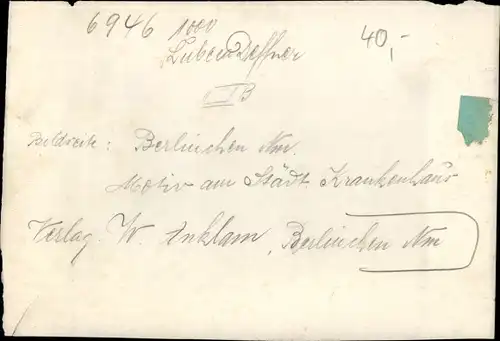 6946 1000
40,-
Luben Deffner
B
Bildseite: Berlinchen Nm.
Motiv am Städt Krankenhaus
Verlag. W. Anklam, Berlinchen Nm